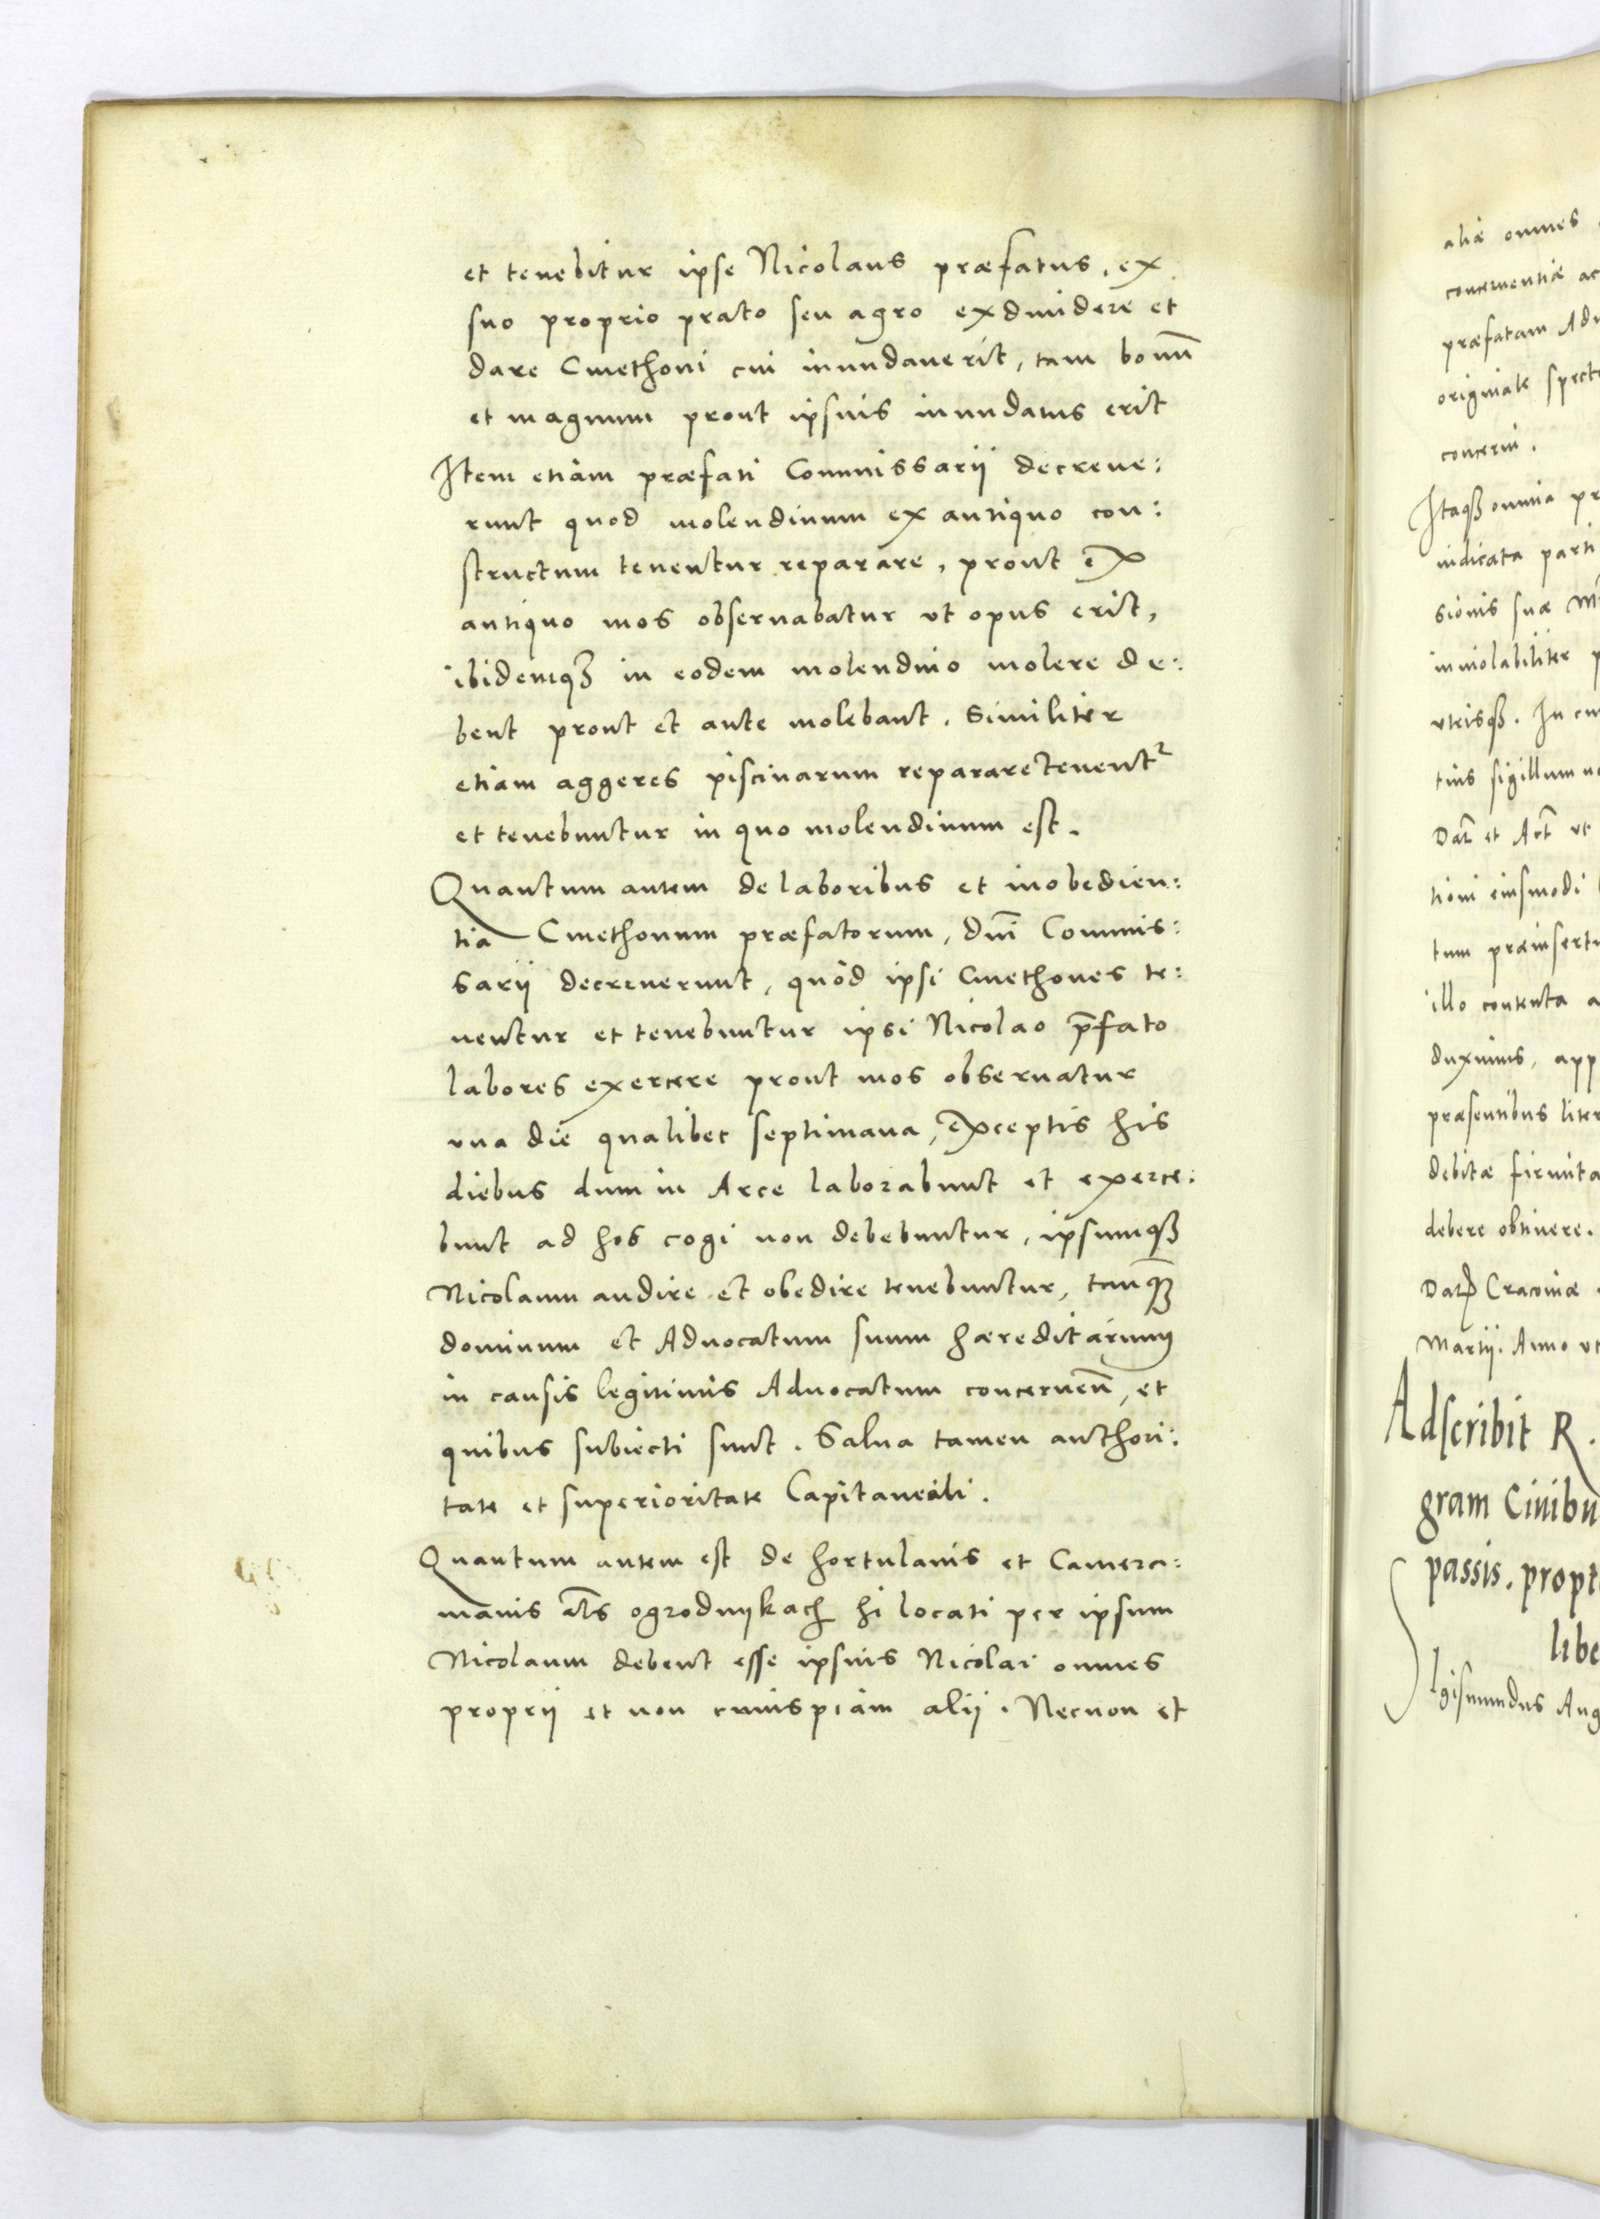 et tenebitur ipse Nicolaus præfatus, ex
suo proprio prato seu agro exdiuidere et
dare Cmethoni cui inundauerit, tam bonũ
et magnum prout ipsius inundatus erit
Item etiam præfati Commissarii decreue:
runt quod molendinum ex antiquo con:
structum tenentur reparare, prout ex
antiquo mos obseruabatur vt opus erit,
ibidemqꝫ in eodem molendino molere de:
bent prout et ante molebant. Similiter
etiam aggeres piscinarum reparare tenentʳ
et tenebuntur in quo molendinum est.
Quantum autem de laboribus et inobedien:
tia Cmethonum præfatorum, dñi Commis:
sarii decreuerunt, quòd ipsi Cmethones te:
nentur et tenebuntur ipsi Nicolao p̃fato
labores exercere prout mos obseruatur
vna die qualibet septimana, exceptis his
diebus dum in Arce laborabunt et exerce:
bunt ad hos cogi non debebuntur, ipsumqꝫ
Nicolaum audire et obedire tenebuntur, tanq̃ꝫ
dominum et Aduocatum suum hæreditarium
in causis legitimis Aduocatum concerneñ, et
quibus subiecti sunt. Salua tamen authori:
tate et superioritate Capitaneali.
Quantum autem est de hortulanis et Camera:
manis al̃s ogrodnijkach hi locati per ipsum
Nicolaum debent esse ipsius Nicolai omnes
proprii et non cuiuspiam alii. Necnon et
aliæ omnes
concernentiæ ac
præfatam Adu
originale specta
concerni.
Itaqꝫ omnia pr
iudicata parti
sionis suæ
inuiolabiliter p
vtrisqꝫ. In cu
tius sigillum no
Dat̃ et Act̃ vt
tioni eiusmodi
tum præinsertu
illo contenta a
duximus, app
præsentibus liter
debitæ firmita
debere obtinere.
Dat̃ Cracouiæ
Martii. Anno vt
Adscribit R.
gram Ciuibu
passis. propt
libe
Sigismundus Aug